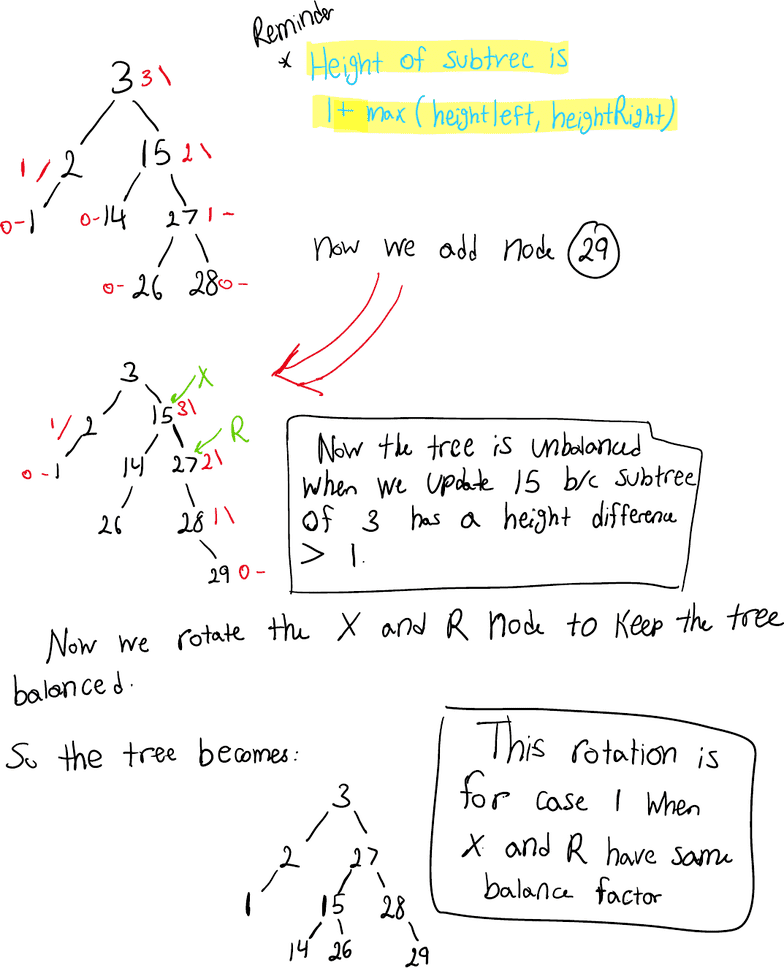 Reminder
* Height of subtree is
1+ max (heightleft, heightRight)
3 3\
1/ 2 15 2\
0-1 0-14 27 1-
0- 26 28 0-
Now we add node 29
3
X
1/ 2 15 3\
R
0-1 14 27 2\
26 28 1\
29 0-
Now the tree is unbalanced
when we update 15 b/c subtree
of 3 has a height difference
> 1.
Now we rotate the X and R node to keep the tree
balanced.
So the tree becomes:
3
2 27
1 15 28
14 26 29
This rotation is
for case 1 when
X and R have same
balance factor